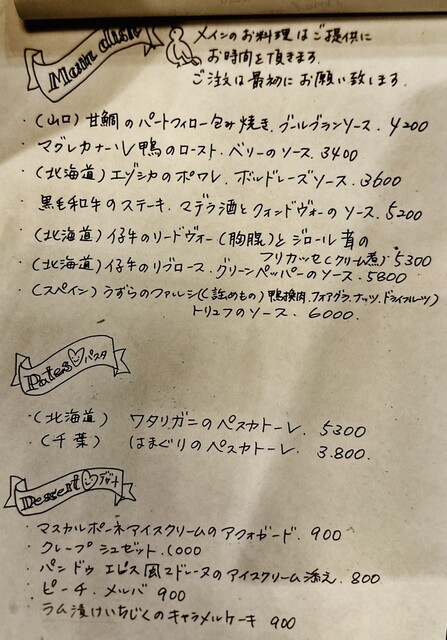 Main dish
メインのお料理はご提供に
お時間を頂きます.
ご注文は最初にお願い致します.
・(山口) 甘鯛のパートフィロー包み焼き. ブールブランソース. 4200
・マグレカナール鴨のロースト. ベリーのソース. 3400
・(北海道) エゾシカのポワレ. ボルドレーズソース. 3600
・黒毛和牛のステーキ. マデラ酒とフォンドヴォーのソース. 5200
・(北海道) 仔牛のリードヴォー(胸腺)とジロール茸の
フリカッセ(クリーム煮) 5300
・(北海道) 仔牛のリブロース. グリーンペッパーのソース. 5800
・(スペイン) うずらのファルシ(詰めもの) 鴨挽肉. フォアグラ. ナッツ. ドライフルーツ)
トリュフのソース. 6000.
Pates パスタ
・(北海道) ワタリガニのペスカトーレ. 5300
・(千葉) はまぐりのペスカトーレ. 3.800.
Dessert デザート
・マスカルポーネアイスクリームのアフォガード. 900
・クレープシュゼット. 1000
・パンドゥエピス風マドレーヌのアイスクリーム添え. 800
・ピーチ. メルバ 900
・ラム漬けいちじくのキャラメルケーキ 900